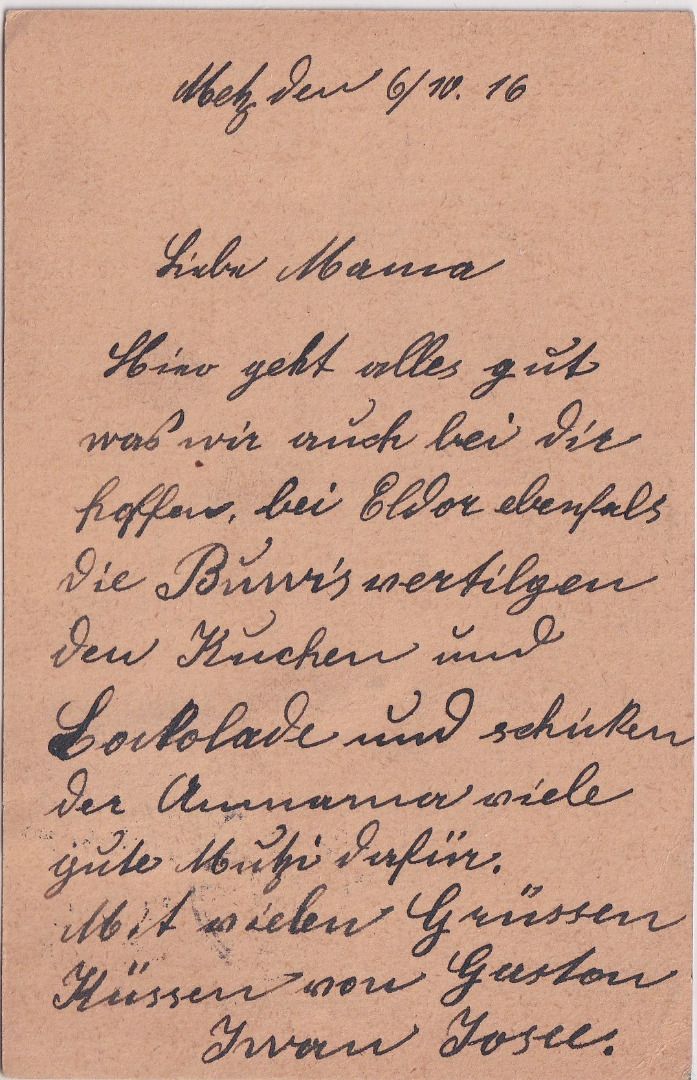 Metz den 6/10. 16
Liebe Mama
Hier geht alles gut
was wir auch bei dir
hoffen, bei Eldor ebenfals
die Buwi's vertilgen
den Kuchen und
und schicken
der Anmama viele
gute Mutzi dafür.
Mit vielen Grüssen
Küssen von Gaston
Iwan Josee.